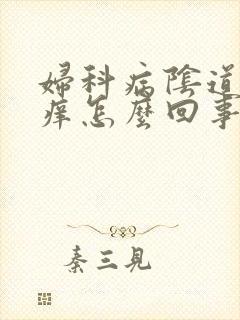 婦科病陰道
癢怎麼回事
秦三見